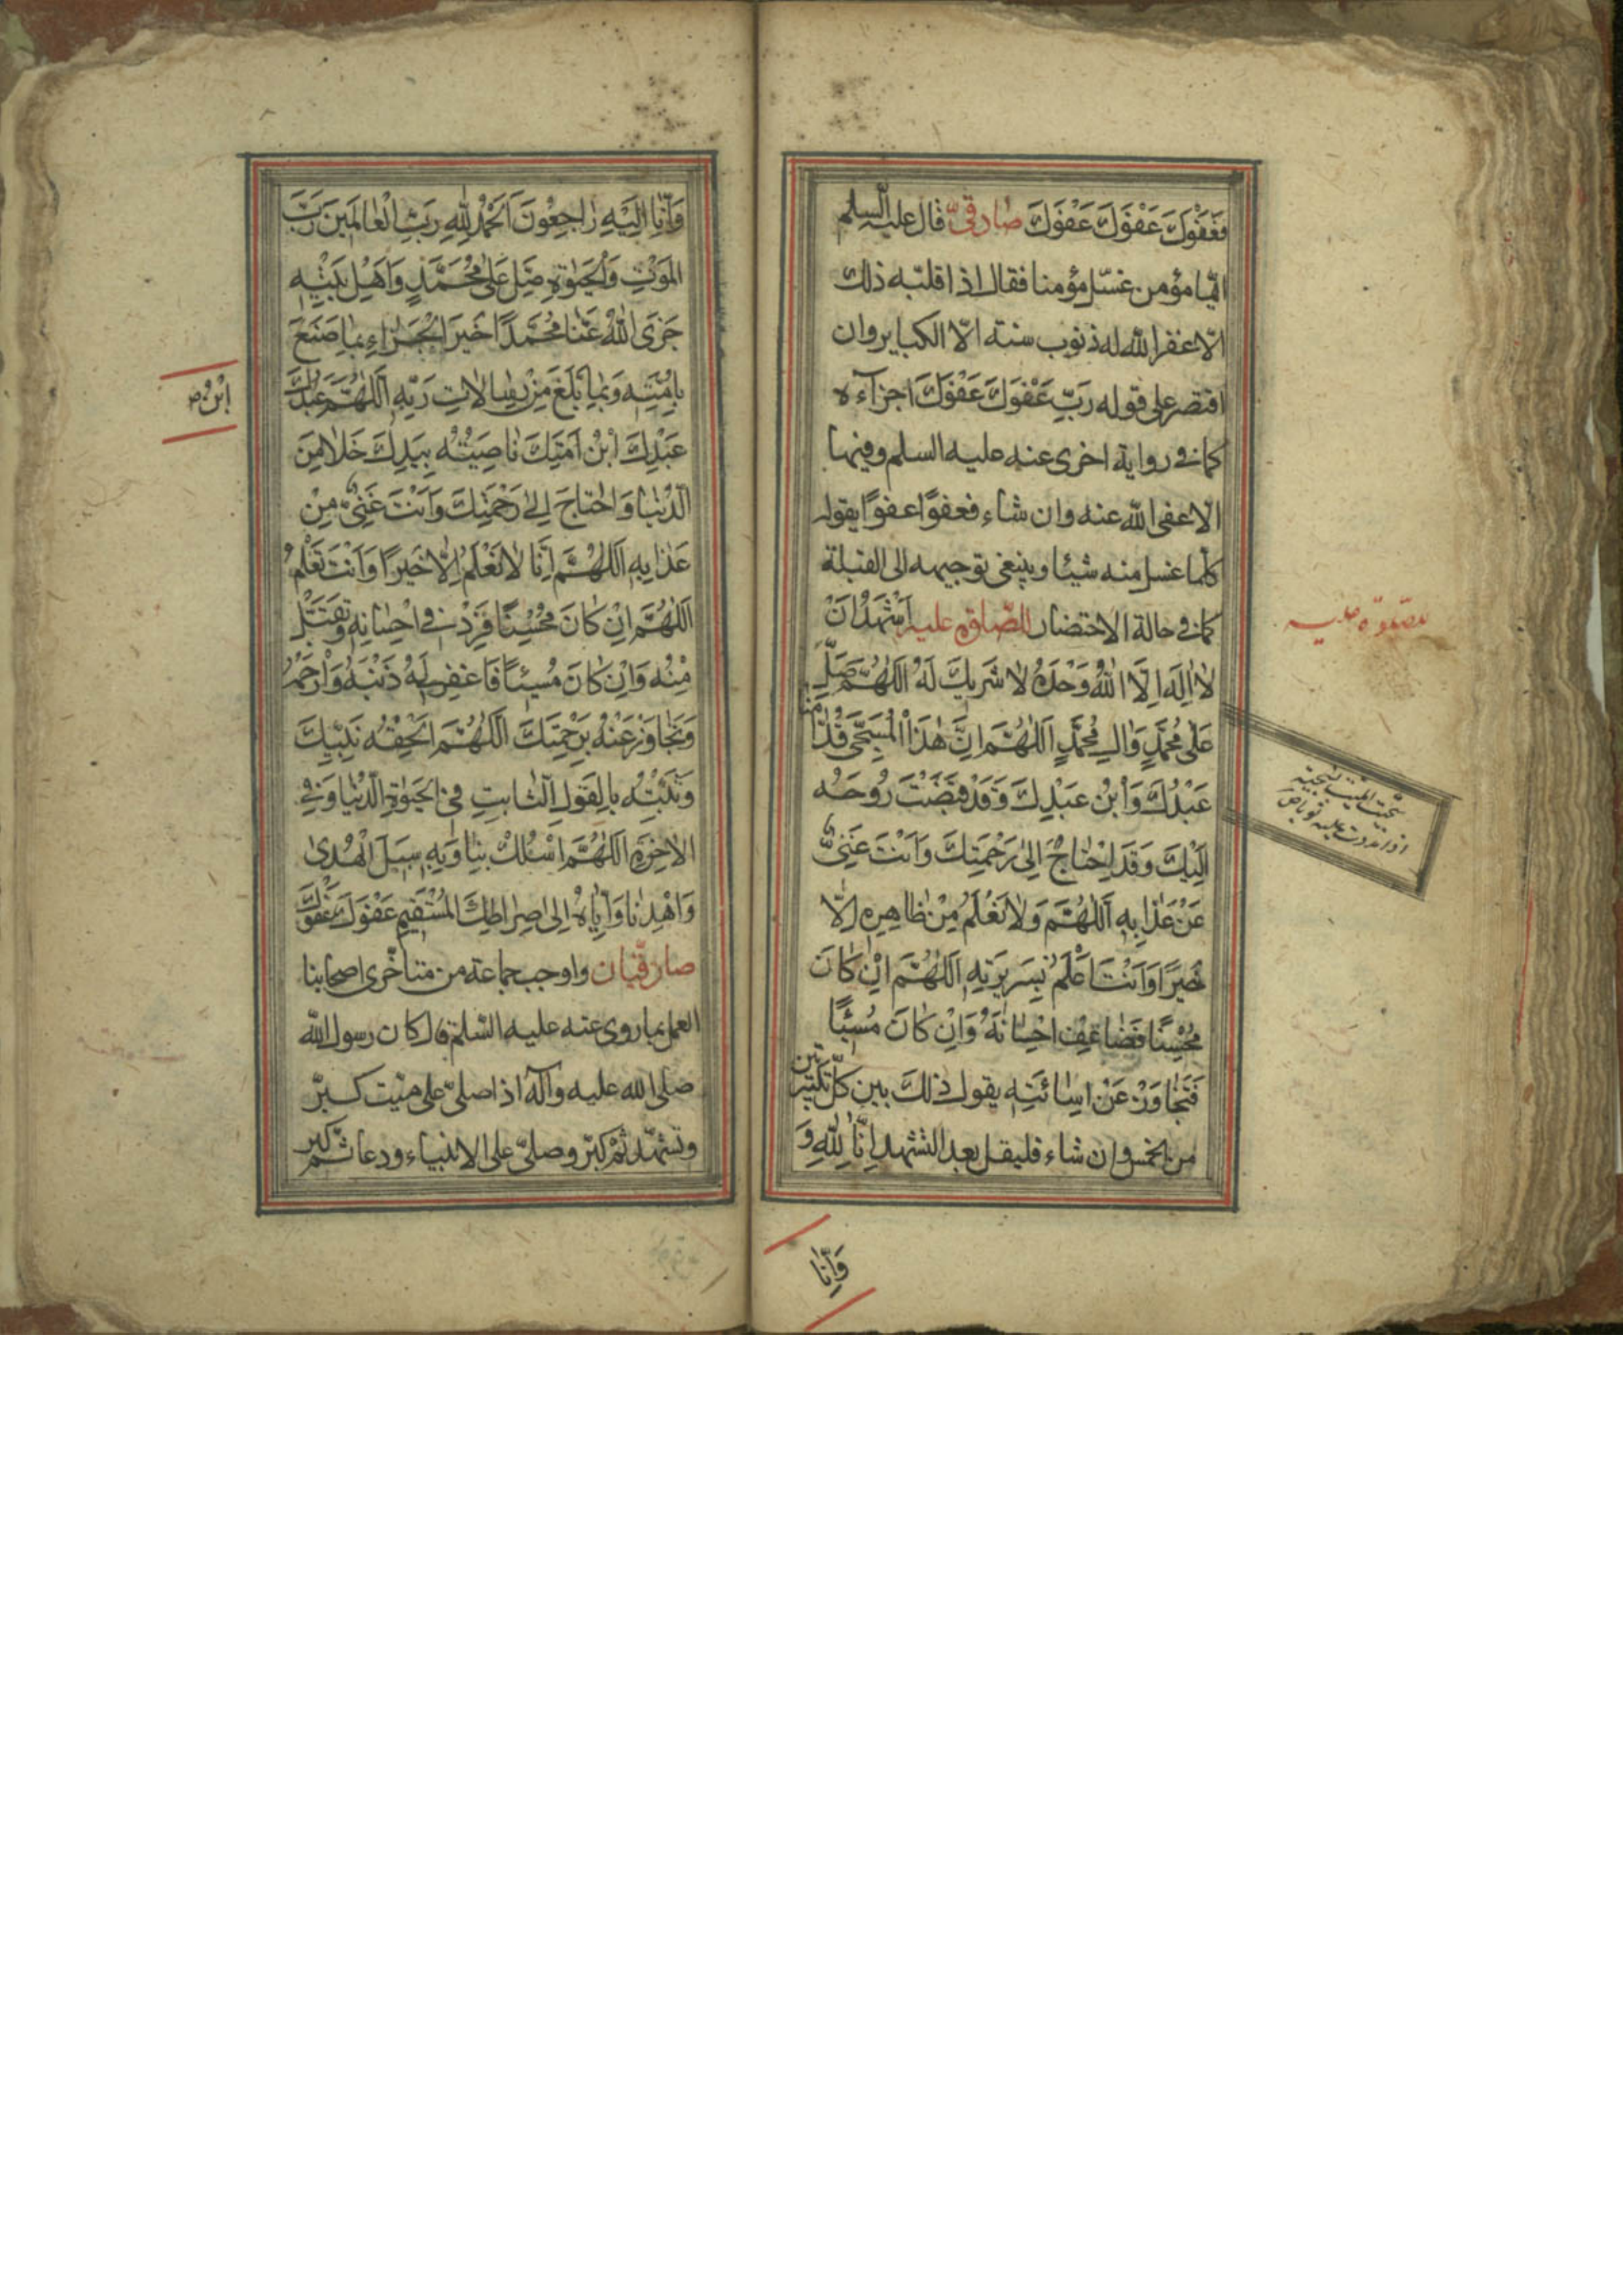 فَعَفْوَكَ عَفْوَكَ عَفْوَكَ صادقىّ قال عليه السلم
ايّما مؤمن غسّل مؤمنا فقال اذا قلّبه ذلك
الّا غفر الله له ذنوب سنته الّا الكباير وان
اقتصر على قوله رَبِّ عَفْوَكَ عَفْوَكَ اجزاءه
كما فى رواية اخرى عنه عليه السلم وفيها
الّا عفى الله عنه وان شاء فعفوًا عفوًا يقول
كلّما غسل منه شيئا وينبغى توجيهه الى القبلة
كما فى حالة الاحتضار للصّلوة عليه اَشْهَدُ اَنْ
لا اِلهَ اِلَّا اللهُ وَحْدَهُ لا شَرِيكَ لَهُ اَللّهُمَّ صَلِّ
عَلى مُحَمَّدٍ وَالِ مُحَمَّدٍ اَللّهُمَّ اِنَّ هذَا الْمُسَجّى قُدّامَنا
عَبْدُكَ وَابْنُ عَبْدِكَ وَقَدْ قَبَضْتَ رُوحَهُ
اِلَيْكَ وَقَدِ احْتاجَ اِلى رَحْمَتِكَ وَاَنْتَ غَنِىٌّ
عَنْ عَذابِهِ اَللّهُمَّ وَلا نَعْلَمُ مِنْ ظاهِرِهِ اِلّا
خَيْرًا وَاَنْتَ اَعْلَمُ بِسَرِيرَتِهِ اَللّهُمَّ اِنْ كانَ
مُحْسِنًا فَضاعِفْ اِحْسانَهُ وَاِنْ كانَ مُسِئًا
فَتَجاوَزْ عَنْ اِسائَتِهِ يقول ذلك بين كلّ تكبيرتين
من الخمس وان شاء فليقل بعد التشهد اِنّا لِلّهِ وَ
وَاِنّا
للصّلوة عليه
وَاِنّا اِلَيْهِ راجِعُونَ اَلْحَمْدُ لِلّهِ رَبِّ الْعالَمِينَ رَبِّ
الْمَوْتِ وَالْحَيوةِ صَلِّ عَلى مُحَمَّدٍ وَاَهْلِ بَيْتِهِ
جَزَى اللهُ عَنّا مُحَمَّدًا خَيْرَ الْجَزاءِ بِما صَنَعَ
بِاُمَّتِهِ وَبِما بَلَّغَ مِنْ رِسالاتِ رَبِّهِ اَللّهُمَّ عَبْدُكَ
اِبْنُ
عَبْدِكَ ابْنُ اَمَتِكَ ناصِيَتُهُ بِيَدِكَ خَلا مِنَ
الدُّنْيا وَاحْتاجَ اِلى رَحْمَتِكَ وَاَنْتَ غَنِىٌّ مِنْ
عَذابِهِ اَللّهُمَّ اِنّا لا نَعْلَمُ اِلّا خَيْرًا وَاَنْتَ تَعْلَمُ
اَللّهُمَّ اِنْ كانَ مُحْسِنًا فَزِدْ فى اِحْسانِهِ وَتَقَبَّلْ
مِنْهُ وَاِنْ كانَ مُسِيئًا فَاغْفِرْ لَهُ ذَنْبَهُ وَارْحَمْهُ
وَتَجاوَزْ عَنْهُ بِرَحْمَتِكَ اَللّهُمَّ اَلْحِقْهُ بِنَبِيِّكَ
وَثَبِّتْهُ بِالْقَوْلِ الثّابِتِ فِى الْحَيوةِ الدُّنْيا وَفِى
الْاخِرَةِ اَللّهُمَّ اسْلُكْ بِنا وَبِهِ سَبِيلَ الْهُدى
وَاهْدِنا وَاِيّاهُ اِلى صِراطِكَ الْمُسْتَقِيمِ عَفْوَكَ عَفْوَكَ
صادقيّان واوجب جماعة من متاخّرى اصحابنا
العمل بما روى عنه عليه السّلم قال كان رسول الله
صلى الله عليه وآله اذا صلّى على ميّت كبّر
وتشهّد ثمّ كبّر وصلّى على الانبياء ودعا ثمّ كبر